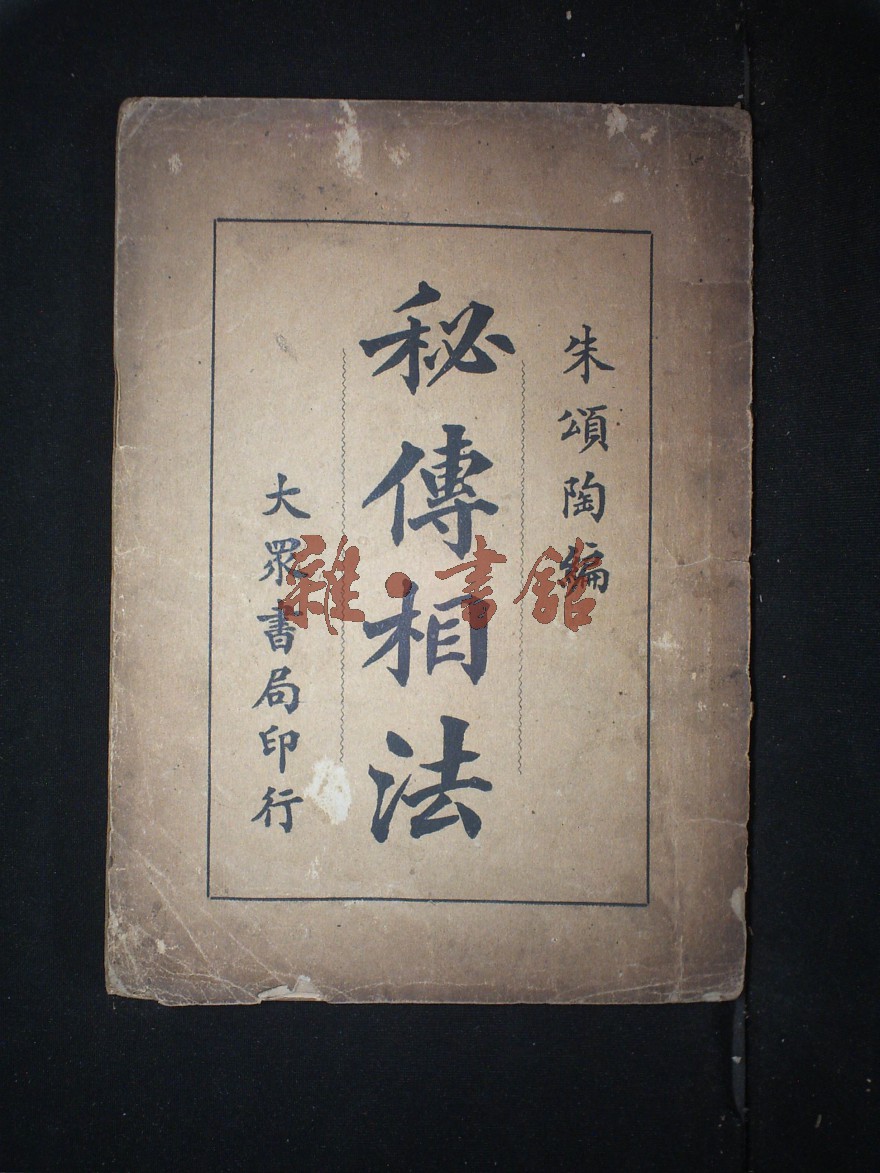 朱頌陶編
秘傳相法
大眾書局印行
雜·書館